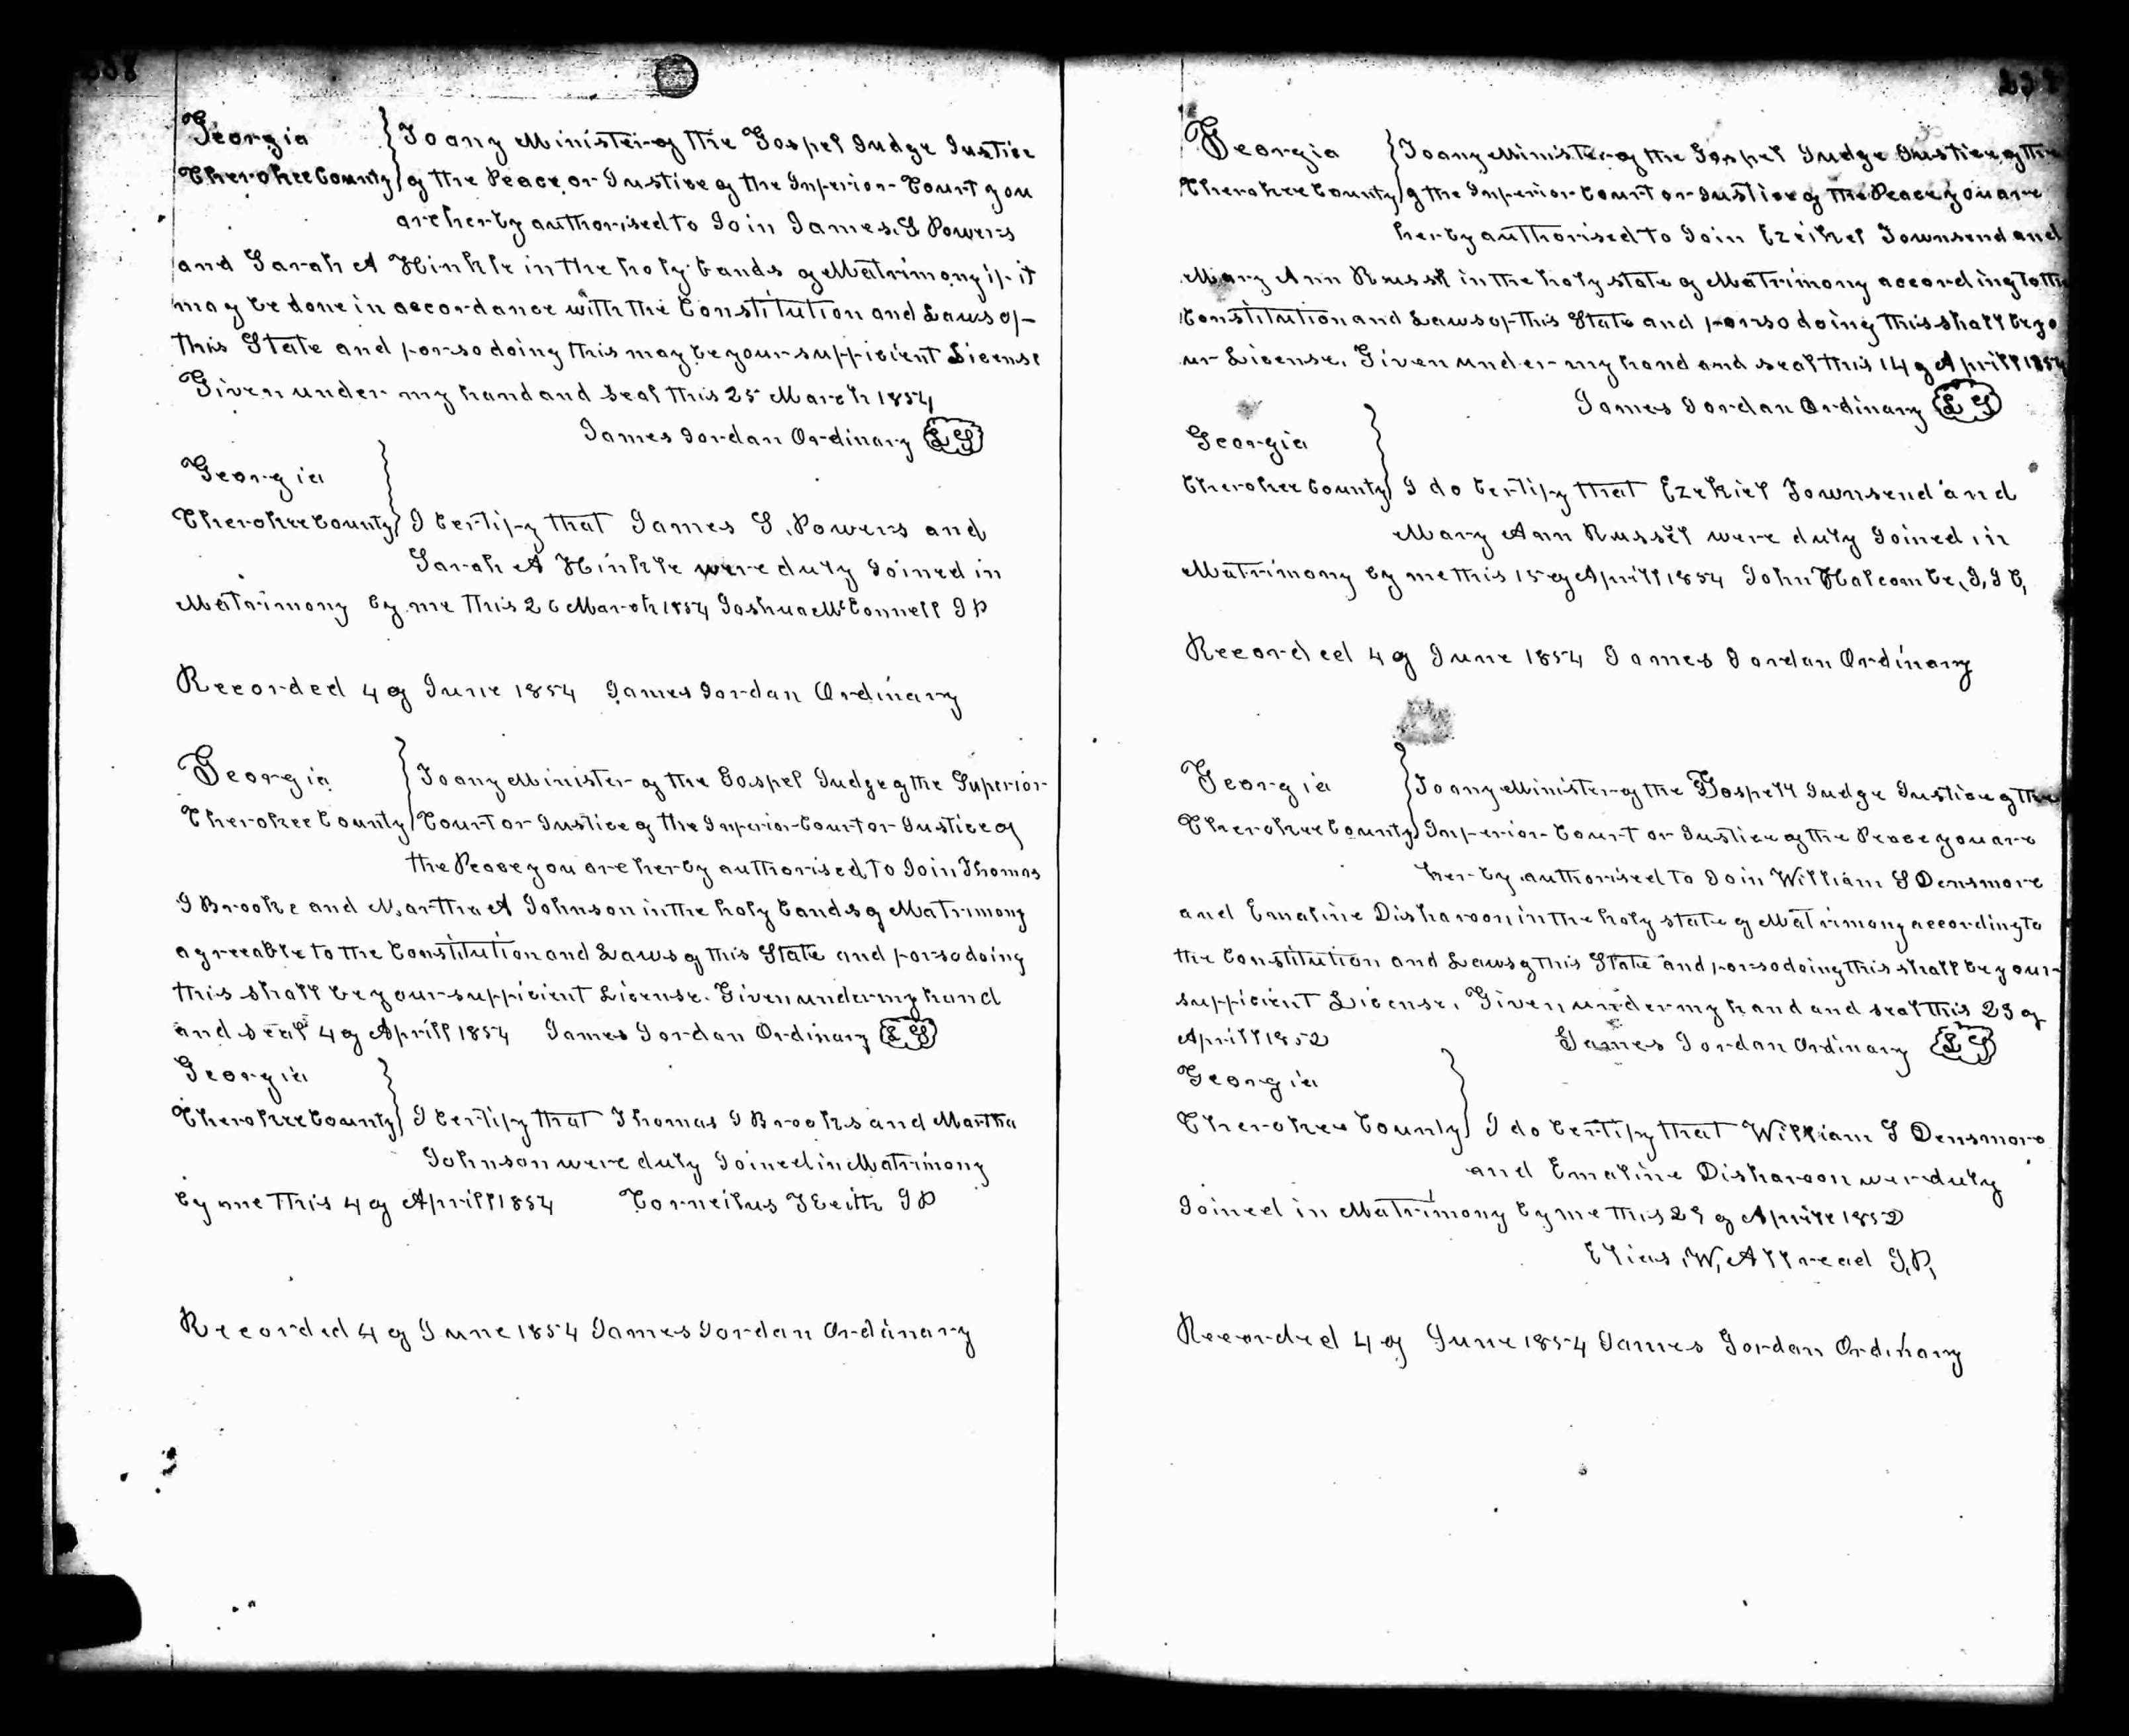 Georgia } To any Minister of the Gospel Judge Justice
Cherokee County } of the Peace or Justice of the Inferior Court you
are herby authorised to Join James S Powers
and Sarah A Hinkle in the holy bands of Matrimony if it
may be done in accordance with the Constitution and Laws of
this State and for so doing this may be your sufficient License
Given under my hand and seal this 25 March 1854
James Jordan Ordinary LS
Georgia }
Cherokee County } I certify that James S. Powers and
Sarah A Hinkle were duly Joined in
Matrimony by me this 26 March 1854 Joshua McConnell JP
Recorded 4 of June 1854 James Jordan Ordinary
Georgia } To any Minister of the Gospel Judge of the Superior
Cherokee County } Court or Justice of the Inferior Court or Justice of
the Peace you are herby authorised to Join Thomas
J Brooke and Martha A Johnson in the holy bands of Matrimony
agreeable to the Constitution and Laws of this State and for so doing
this shall be your sufficient License. Given under my hand
and seal 4 of Aprill 1854 James Jordan Ordinary LS
Georgia }
Cherokee County } I certify that Thomas J Brooks and Martha
Johnson were duly Joined in Matrimony
by me this 4 of Aprill 1854 Corneilus Keith JP
Recorded 4 of June 1854 James Jordan Ordinary
Georgia } To any Minister of the Gospel Judge Justice of the
Cherokee County } of the Inferior Court or Justice of the Peace you are
herby authorised to Join Ezeikel Townsend and
Mary Ann Russk in the holy state of Matrimony according to the
Constitution and Laws of this State and for so doing this shall be yo
ur License. Given under my hand and seal this 14 of Aprill 1854
James Jordan Ordinary LS
Georgia }
Cherokee County } I do certify that Ezekiel Townsend and
Mary Ann Russel were duly Joined in
Matrimony by me this 15 of Aprill 1854 John Halcombe, J, I C,
Recorded 4 of June 1854 James Jordan Ordinary
Georgia } To any Minister of the Gospell Judge Justice of the
Cherokee County } Inferior Court or Justice of the Peace you are
herby authorised to Join William S Densmore
and Emaline Disharoon in the holy state of Matrimony according to
the Constitution and Laws of this State and for so doing this shall be your
sufficient License, Given under my hand and seal this 23 of
Aprill 1852 James Jordan Ordinary LS
Georgia }
Cherokee County } I do certify that William S Densmore
and Emaline Disharoon wer duly
Joined in Matrimony by me this 29 of Aprill 1852
Elias, W, Allread J, P,
Recorded 4 of June 1854 James Jordan Ordinary